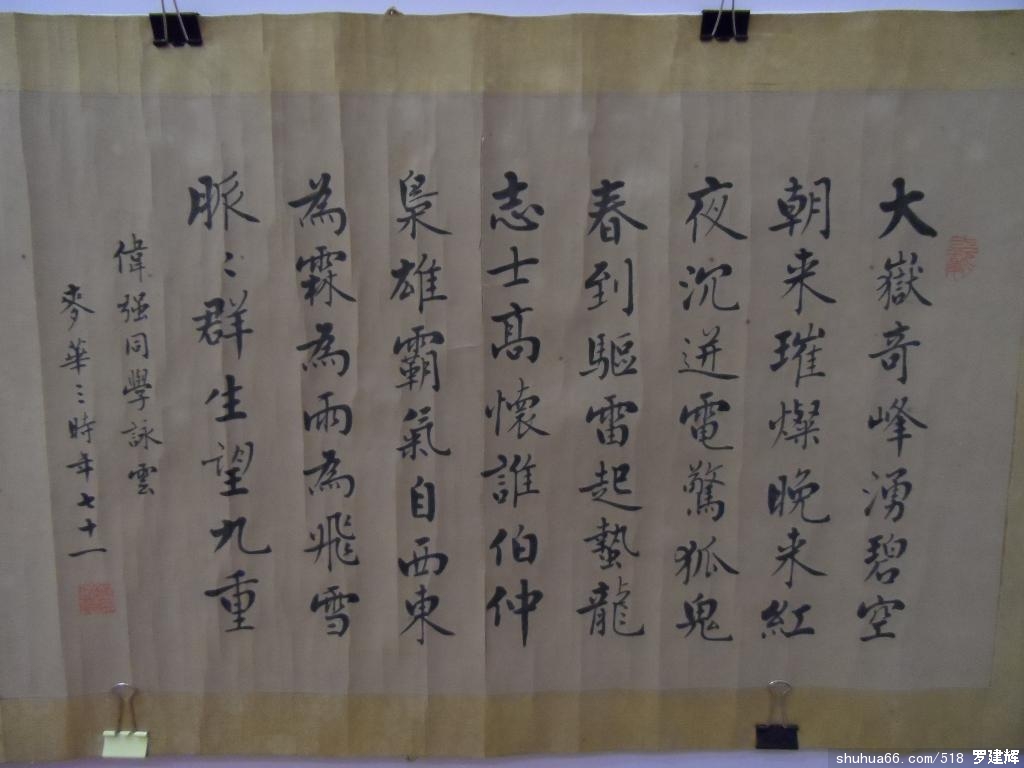 大嶽奇峰湧碧空
朝来璀燦晚来紅
夜沉迸電驚狐鬼
春到驅雷起蟄龍
志士高懷誰伯仲
梟雄霸氣自西東
為霖為雨為飛雪
脈〻群生望九重
偉强同學詠雲
麥華三時年七十一
shuhua66.com/518 罗建辉